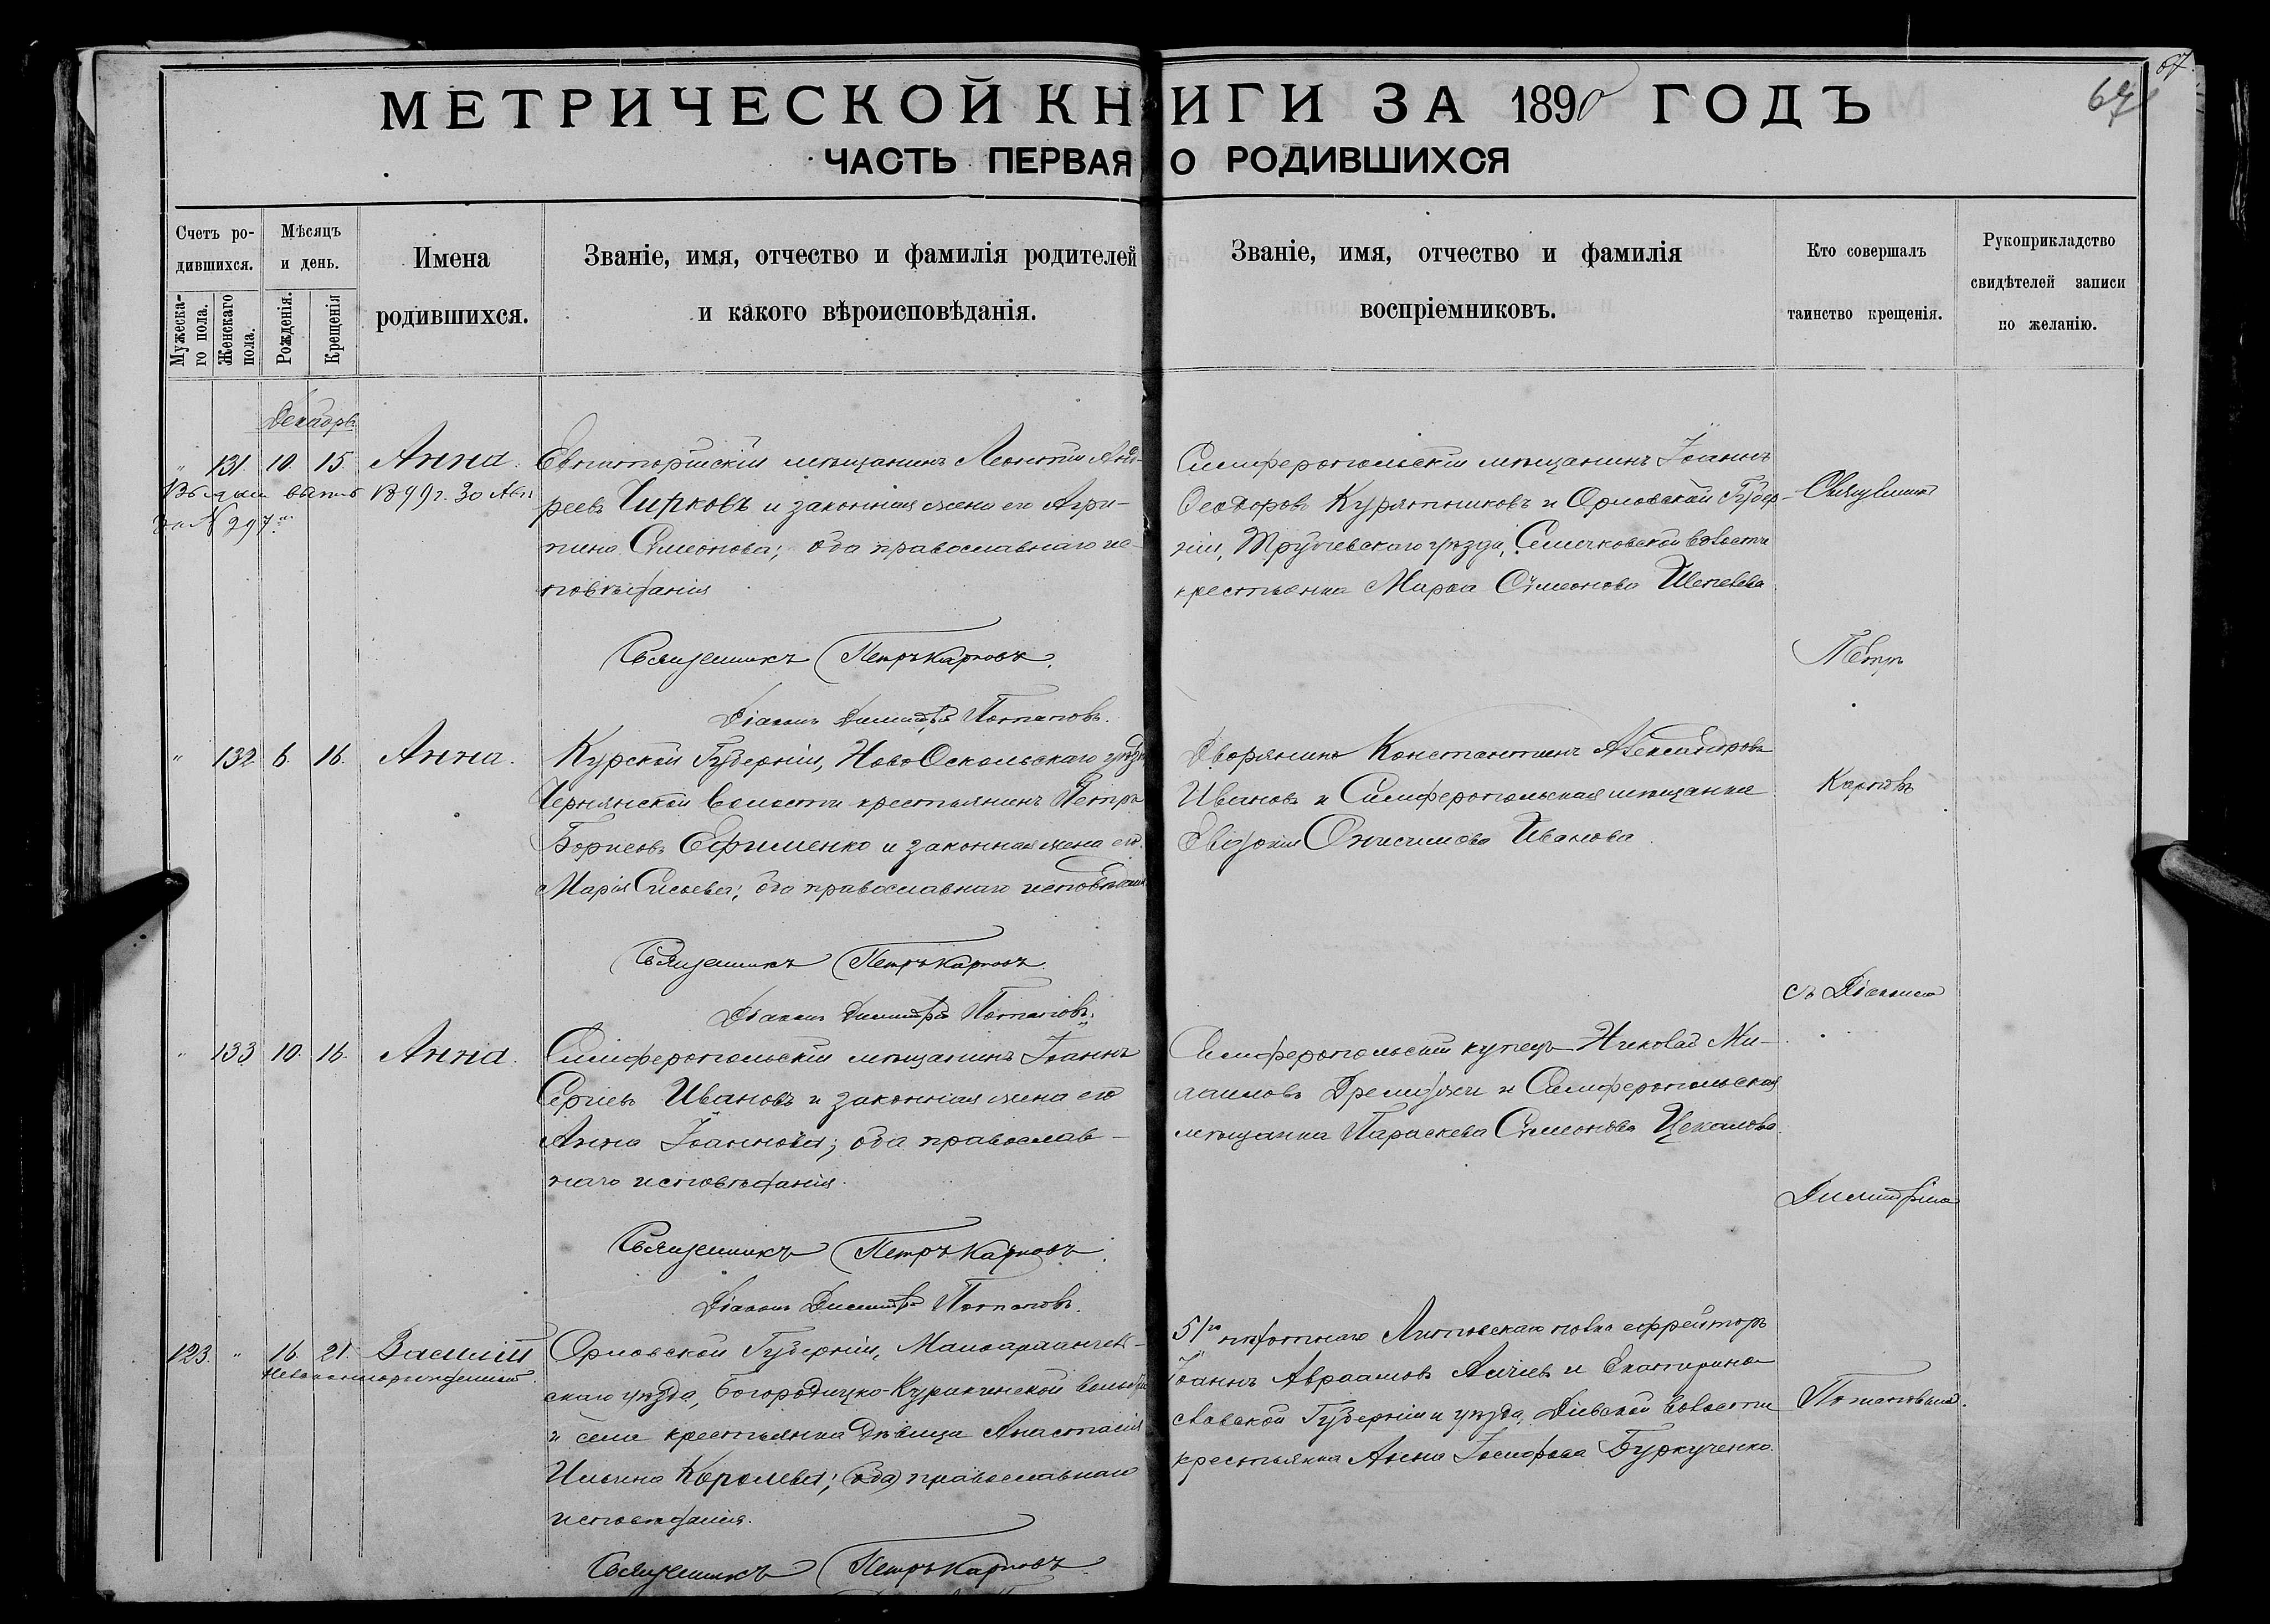 67.
67
МЕТРИЧЕСКОЙ КНИГИ ЗА 1890 ГОДЪ
ЧАСТЬ ПЕРВАЯ О РОДИВШИХСЯ
Счетъ ро-
дившихся.
Мужеска-
го пола.
Женскаго
пола.
Мѣсяцъ
и день.
Рожденія.
Крещенія
Имена
родившихся.
Званіе, имя, отчество и фамилія родителей
и какого вѣроисповѣданія.
Званіе, имя, отчество и фамилія
воспріемниковъ.
Кто совершалъ
таинство крещенія.
Рукоприкладство
свидѣтелей записи
по желанію.
Декабрь
" 131. 10. 15. Анна.
1899 г. 30
за № 297
Евпаторійскій мѣщанинъ Леонтій Анд-
реевъ Чирковъ и законная жена его Агри-
пина Симеонова; оба православнаго ис-
повѣданія
Священникъ Петръ Карповъ.
Діаконъ Димитрій Потаповъ.
Симферопольскій мѣщанинъ Іоаннъ
Ѳеодоровъ Курятниковъ и Орловской Губер-
ніи, Трубчевскаго уѣзда, Семячковской волости
крестьянка Марѳа Симеонова Шепелева
" 132 6. 16. Анна.
Курской Губерніи, НовоОскольскаго уѣзда
Чернянской волости крестьянинъ Петръ
Борисовъ Ефименко и законная жена его
Марія Сисоева; оба православнаго исповѣданія
Священникъ Петръ Карповъ.
Діаконъ Димитрій Потаповъ.
Дворянинъ Константинъ Александровъ
Ивановъ и Симферопольская мѣщанка
Евдокія Онисимова Иванова.
" 133 10. 16. Анна.
Симферопольскій мѣщанинъ Іоаннъ
Сергіевъ Ивановъ и законная жена его
Анна Іоаннова; оба православ-
наго исповѣданія.
Священникъ Петръ Карповъ.
Діаконъ Димитрій Потаповъ.
Симферопольскій купецъ Николай Ми-
и Симферопольская
мѣщанка Параскева Симеонова Цекалова
123. " 16 21. Василій
незаконнорожденный.
Орловской Губерніи, Малоархангель-
скаго уѣзда, Богородицко-Куракинской волости
и села крестьянка дѣвица Анастасія
Ильина Королева; православнаго
исповѣданія.
Священникъ Петръ Карповъ.
51го пѣхотнаго Литовскаго полка ефрейторъ
Іоаннъ Авраамовъ и Екатерино-
славской Губерніи и уѣзда, Діевской волости
крестьянка Анна Іосифова Буркученко.
Священникъ
Петръ
Карповъ
съ Діакономъ
Димитріемъ
Потаповымъ.